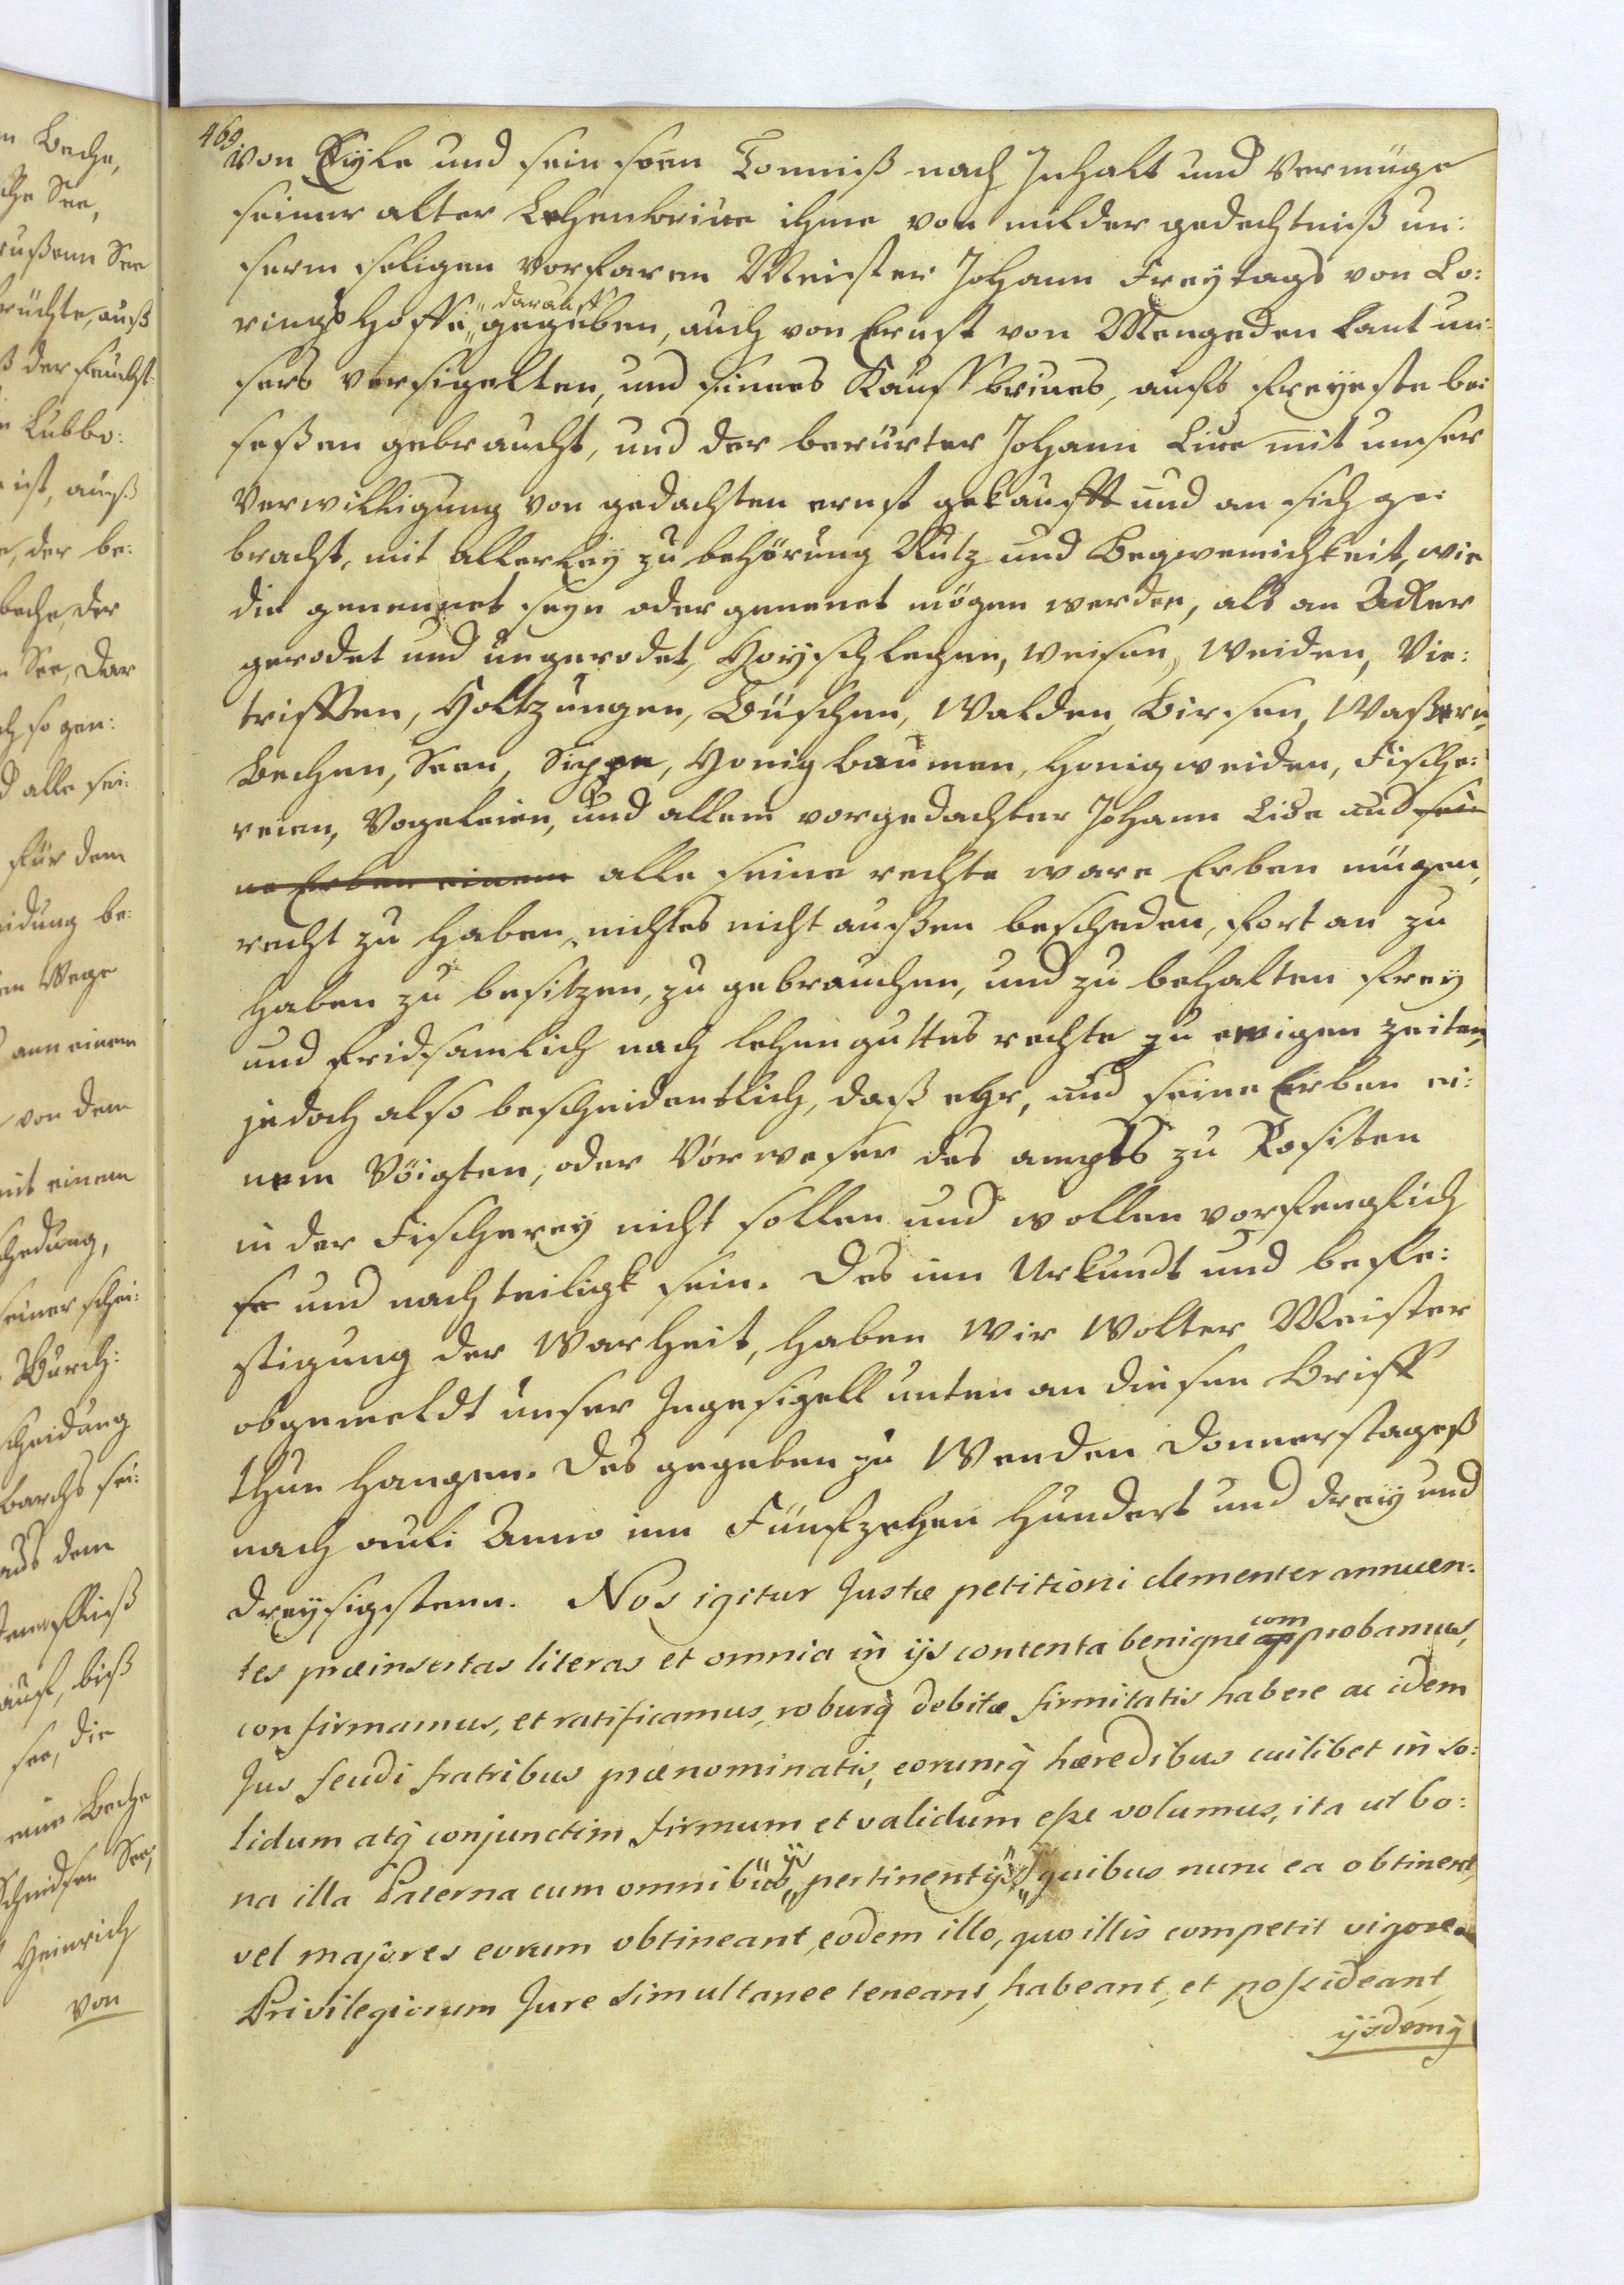 469.
von Eyle und sein soen Tonniß nach Inhalt und Vermüge
seiner alter Lehenbriue ihme von milder gedechtniß un:
serm seligen vorfaren Meister Johann Freytags von Lo:
rings Hoffe, darauff gegeben, auch von Ernst von Mengeden laut un:
sers versigelten, und seines Kauffbriues, aufs freyeste be:
seßen gebraucht, und der berürter Johann Liue mit unser
Verwilligung von gedachten ernst gekaufft und an sich ge:
bracht, mit allerley zu behörung Nutz und Beqwemichkeit, wie
die genennet seyn oder genennet mögen werden, als an Acker
gerodet und ungerodet, Hoyschlegen, weisen, Weiden, Vie:
trifften, Holtzungen, Büschen, Walden, Birsen, Waßern,
Bechen, Seen, Sippe, Honigbaumen, Honigweiden, Fische:
reien, Vogeleien, und allem vorgedachter Johann Live und sei
ne Erben einem alle seine rechte ware Erben mügen,
recht zu haben, nichtes nicht außen bescheden, fort an zu
haben zu besitzen, zu gebrauchen, und zu behalten frey
und fridsamlich nach lehenguttes rechte zu ewigen zeiten,
jedoch also bescheidentlich, daß ehr, und seine Erben ei:
nem Vöigten, oder Vorweser des ampts zu Rositen
in der Fischerey nicht sollen und wollen vorfenglich
se und nachteiligk sein. Des inn Urkundt und befe:
stigung der Warheit, haben Wir Wolter Meister
obgemeldt unser Ingesigell unten an diesen Briff
thun hangen. Des gegeben zu Wenden Donnerstageß
nach auli Anno inn Fünfzehen hundert und drey und
dreysigstenn. Nos igitur Justæ petitioni clementer annuen:
tes præinsertas literas et omnia in ijs contenta benigne com approbamus,
confirmamus, et ratificamus, roburq debitæ firmitatis habere ac idem
Jus feudi fratribus prænominatis, eorumq hæredibus cuilibet in so:
lidum atq conjunctim firmum et validum eße volumus, ita ut bo:
na illa Paterna cum omnibus ijs pertinentijs, quibus nunc ea obtinent,
vel majores eorum obtineant, eodem illo, quo illis competit vigore
Privilegiorum Jure simultanee teneant, habeant, et poßideant,
ijsdemq